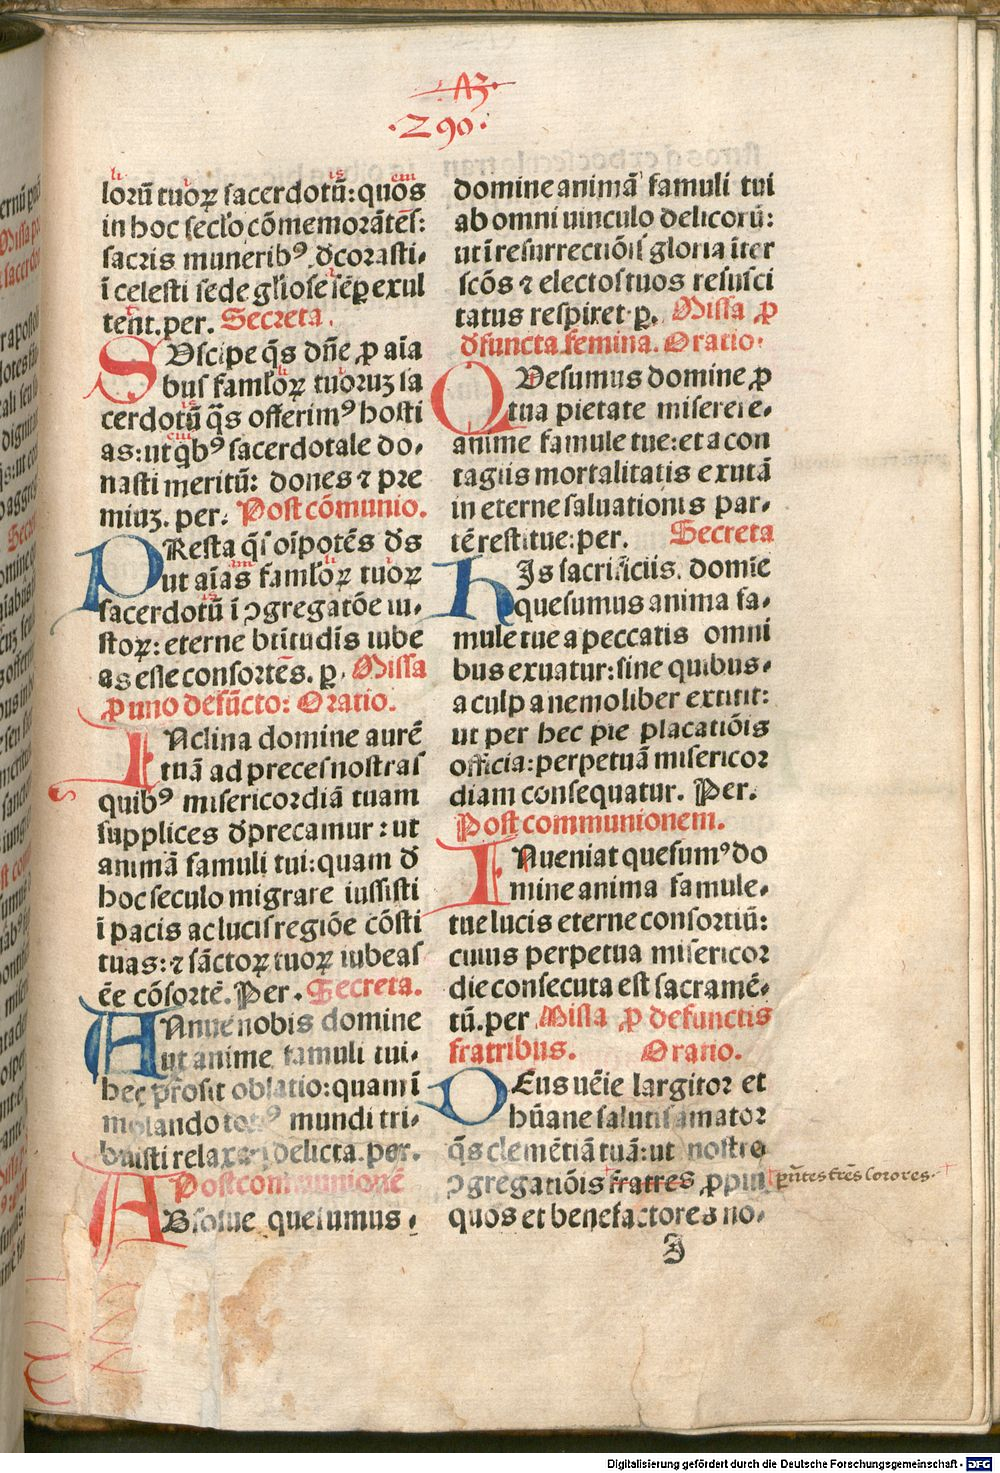 ·290·
lorū tuoꝝ sacerdotū: quos
in hoc sećlo cōmemorātes:
sacris munerib⁹ ꝺcorasti.
ī celesti sede gl̄iose sēꝑ exul
tent. per. Secreta.
SUscipe q̄s dn̄e ꝓ aīa
bus famĺoꝝ tuoruꝫ sa
cerdotū q̄s offerim⁹ hosti
as: ut qb⁹ sacerdotale do.
nasti meritū: dones ⁊ pre
miuꝫ. per. Post cōmunio.
PResta q̄s oīpotēs ds̄
ut aīas famĺoꝝ tuoꝝ
sacerdotū ī ꝯgregatōe iu.
stoꝝ: eterne btītudīs iube
as esse consortēs. ꝑ. Missa
ꝓ uno defūcto: Oratio.
INclina domine aurē
tuā ad preces nostras
quib⁹ misericordiā tuam
supplices ꝺprecamur: ut
animā famuli tui: quam ꝺ
hoc seculo migrare iussisti
ī pacis ac lucis regiōe cōsti
tuas: ⁊ sāctoꝝ tuoꝝ iubeas
ēe cōsortē. Per. Secreta.
ANnue nobis domine
ut anime famuli tui.
hec prosit oblatio: quam ī
molando tot⁹ mundi tri.
buisti relaxari delicta. per.
Postcommunionē
ABsolue quesumus.
domine animā famuli tui
ab omni uinculo delictorū:
ut ī resurrectiōis gloria īter
scōs ⁊ electos tuos resusci
tatus respiret. ꝑ. Missa ꝓ
ꝺfuncta femina. Oratio.
QUesumus domine ꝓ
tua pietate miserere.
anime famule tue: et a con
tagiis mortalitatis exutā
in eterne saluationis par.
tē restitue: per. Secreta
HIs sacrificiis. domīe
quesumus anima fa.
mule tue a peccatis omni
bus exuatur: sine quibus.
a culpa nemo liber extitit:
ut per hec pie placatiōis
officia: perpetuā misericor
diam consequatur. Per.
Post communionem.
INueniat quesum⁹ do
mine anima famule.
tue lucis eterne consortiū:
cuius perpetua misericor
die consecuta est sacramē.
tū. per. Missa ꝓ defunctis
fratribus. Oratio.
DEus uēie largitor et
hūane salutis amator
q̄s clemētiā tuā: ut nostre
ꝯgregatiōis fratres ꝓpin
quos et benefactores no.
I